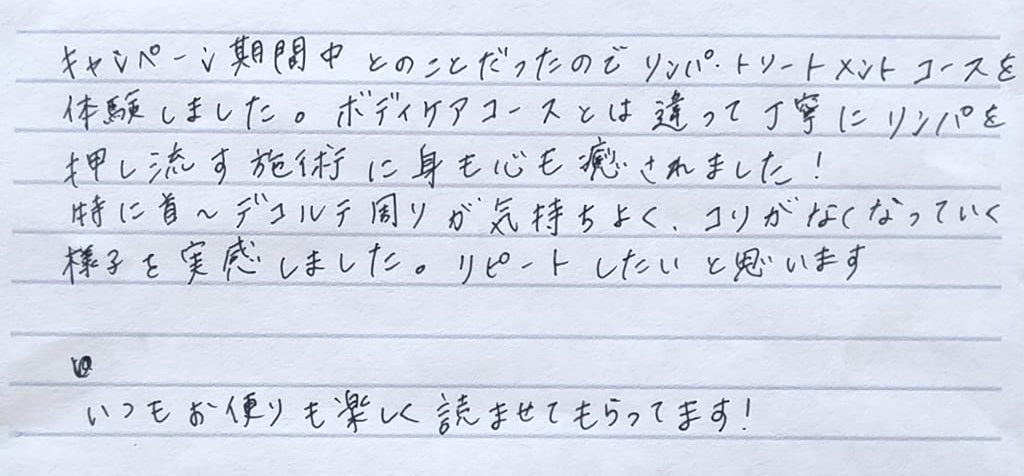 キャンペーン期間中とのことだったのでリンパ・トリートメントコースを
体験しました。ボディケアコースとは違って丁寧にリンパを
押し流す施術に身も心も癒されました!
特に首〜デコルテ周りが気持ちよく、コリがなくなっていく
様子を実感しました。リピートしたいと思います
いつもお便りも楽しく読ませてもらってます!